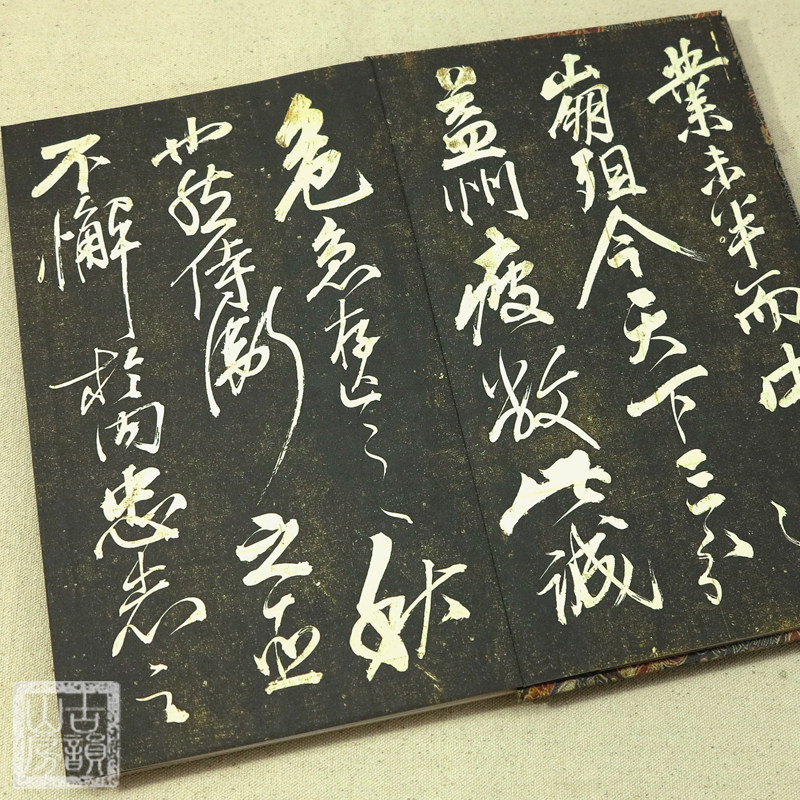 業未半而中
崩殂今天下三分
益州疲敝此誠
危急存亡之秋
也然侍衛之臣
不懈於內忠志之
古韻山房